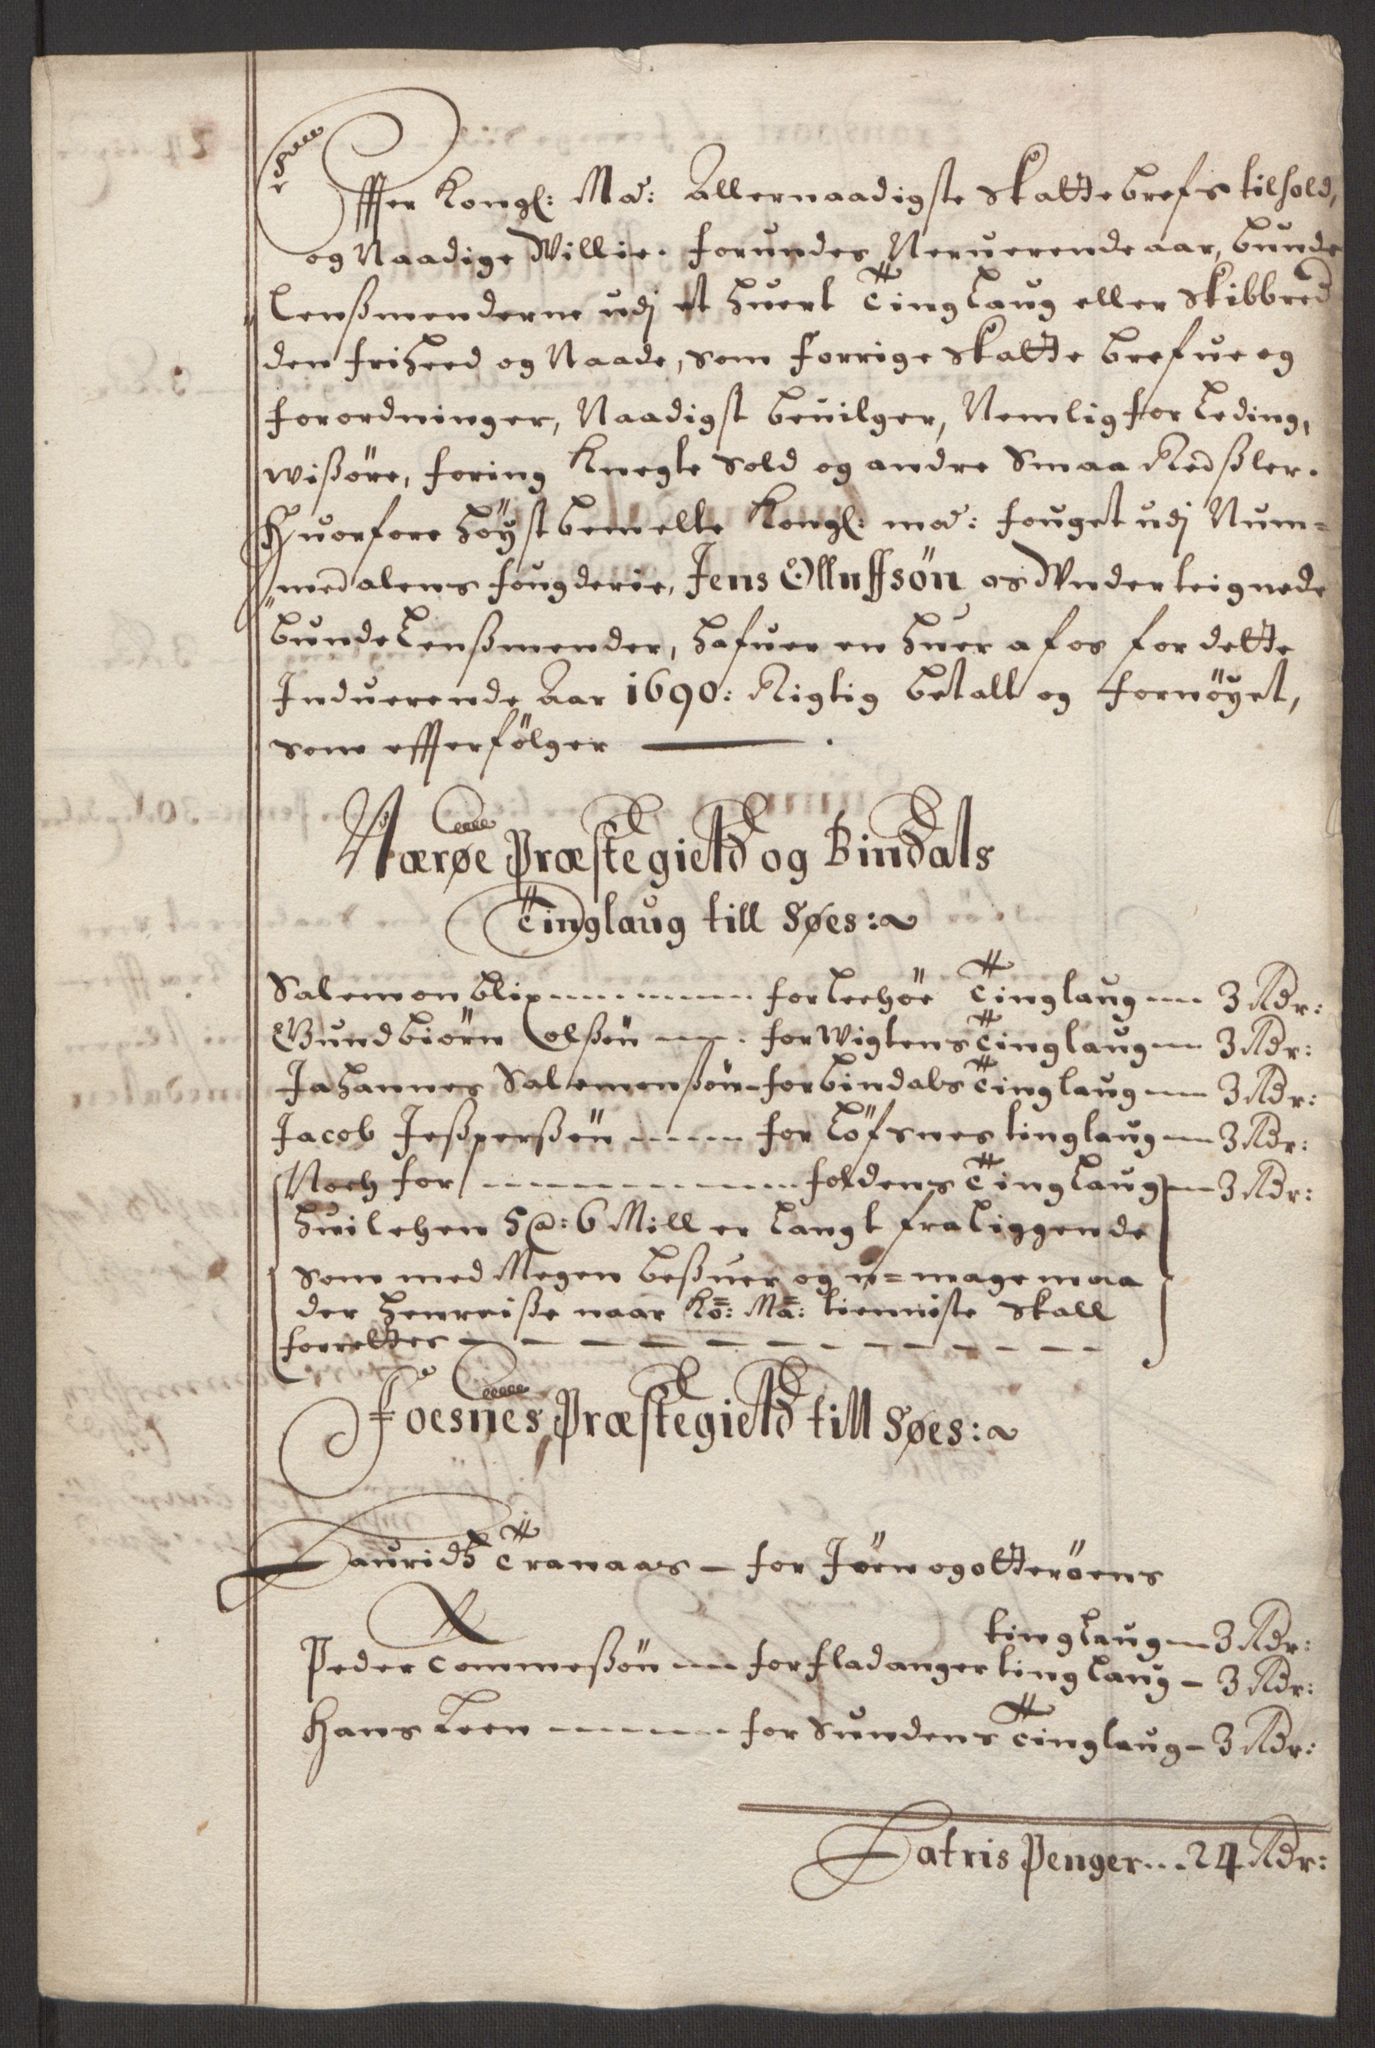 Effter Kongl: Ma: Allernaadigste Skattebrefs tilhold,
og Naadige Willie. forundes Neruerende aar, bunde
Lensmenderne udj et huert Tinglaug eller Skibbred
den friheed og Naade, som forrige Skatte brefue og
forordninger, Naadigst beuilger, Nemlig for Leding,
Wißøre, foring Knegte Sold og andre Smaa Redßler.
Huorfore höyst bemelte Kongl: ma: fouget udj Num=
medalens fougderie, Jens Olluffsøn os Underteignede
bunde Lenßmender, hafuer en huer af os for dette
Induerende Aar 1690: Rigtig betalt og fornöyet,
som effterfölger
Nærøe Præstegield og Bindals
Tinglaug till Søes:
Salemon blix for Leehöe Tinglaug 3 Rdr:
Gundbiörn Colßön for Wigtens Tinglaug 3 Rdr:
Johannes Salemonßön for bindals Tinglaug 3 Rdr:
Jacob Jeßperßön for Löfsnes tinglaug 3 Rdr:
Noch for foldens Tinglaug 3 Rdr:
huilchen 5 @: 6 Mill er Langt fraliggende
som med Megen beßuer og u=mage maa
der henreiße naar Ko: Ma: tienniste skall
forrettes
Foesnes Præstegield till Søes:
Lauridtz Tranaas for Jöen og otteröens
tinglaug 3 Rdr:
Peder Commeßön for fladanger tinglaug 3 Rdr:
Hans Leen for Sundens Tinglaug 3 Rdr:
Latris Penger 24 Rdr: